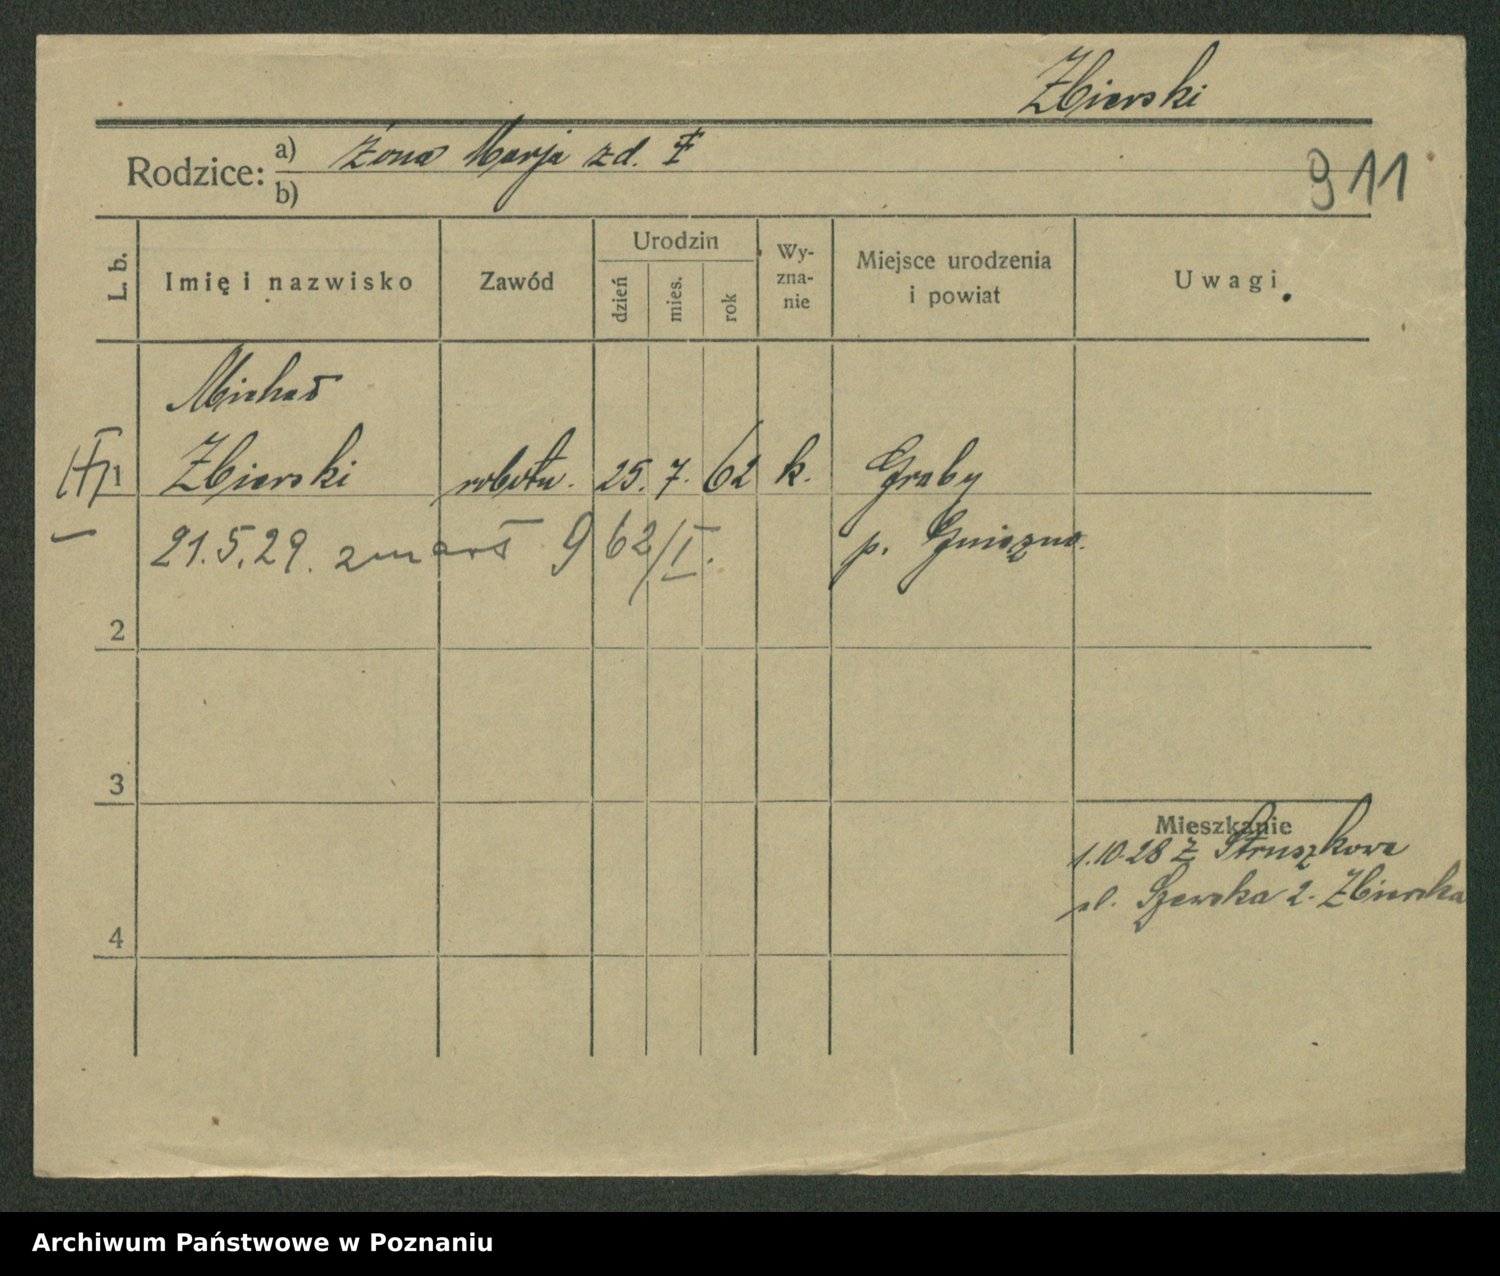 Zbierski
Rodzice: a) żona Marja zd. F
b)
911
L. b.
Imię i nazwisko
Zawód
Urodzin
dzień
mies.
rok
Wy-
zna-
nie
Miejsce urodzenia
i powiat
Uwagi
Michał
1 Zbierski robotn. 25. 7. 62 k. Graby
p. Gniezno.
21.5.29. zmarł 962/I.
2
3
4
Mieszkanie
1.10.28 z Struszkowa
ul. Szewska 2. Zbierska
Archiwum Państwowe w Poznaniu